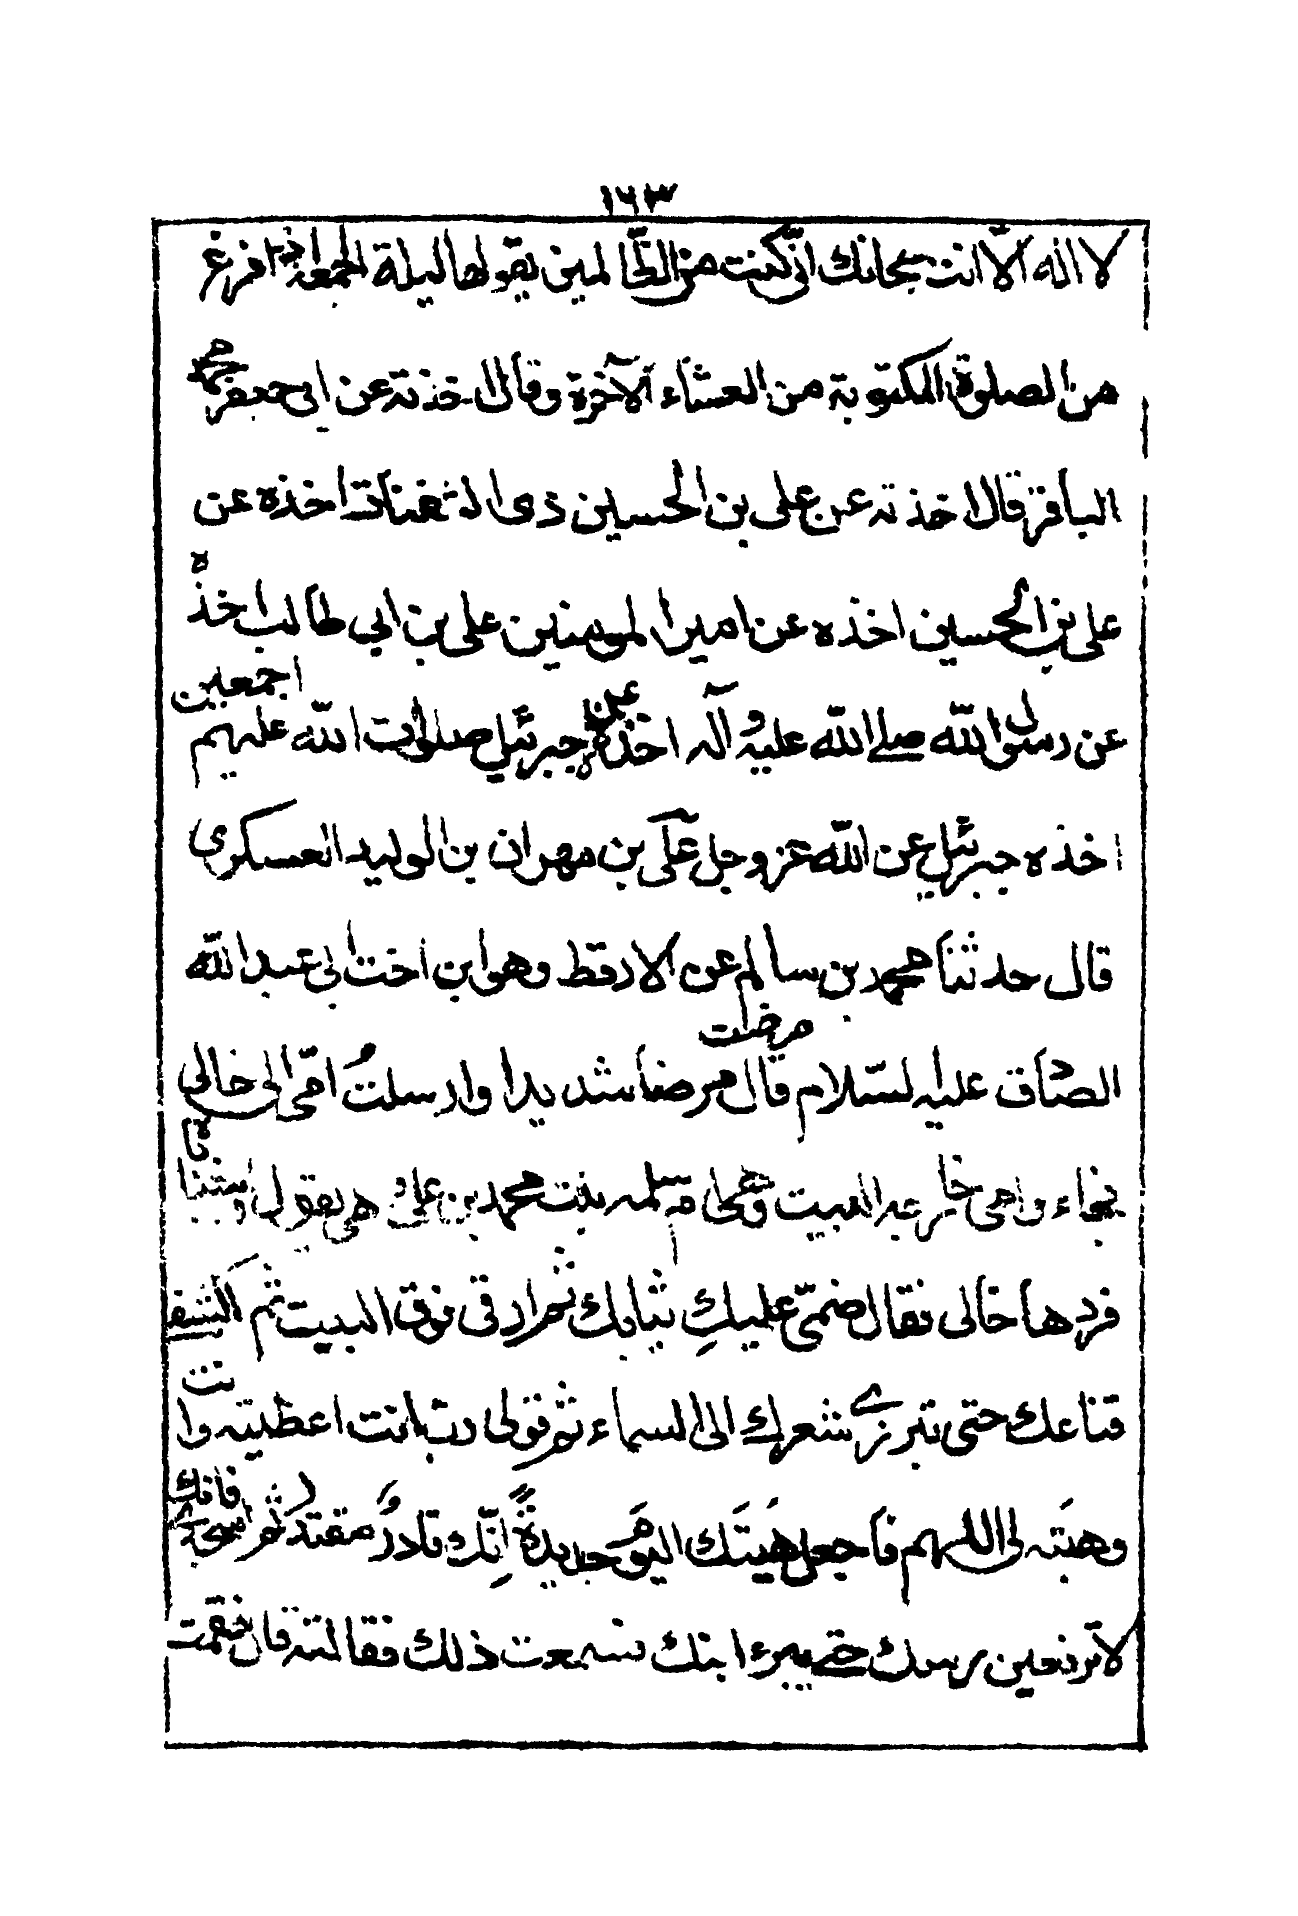 ١٦٣
لا اله الا انت سبحانك انّى كنت من الظالمين يقولها ليلة الجمعة اذا فرغ
من الصلوة المكتوبة من العشاء الآخرة وقال اخذته عن ابى جعفر محمد
الباقر قال اخذته عن على بن الحسين ذى الثفنات اخذه عن
على بن الحسين اخذه عن امير المومنين على بن ابي طالب اخذه
عن رسول الله صلے الله عليه وآله اخذه عن جبرئيل صلوات الله عليهم اجمعين
اخذه جبرئيل عن الله عز وجل علىّ بن مهران بن الوليد العسكرى
قال حدثنا محمد بن سالم عن الارقط وهو ابن اخت ابى عبد الله
الصادق عليه السّلام قال مرضت مرضا شديدا وارسلتُ امّى الى خالى
فجاء وامى خارجة الباب البيت وهى ام سلمه بنت محمد بن على وهى تقول واشباباه
فردها خالى فقال ضمّى عليكِ ثيابك ثم ارقى فوق البيت ثم اكشفى
قناعك حتى تبرزے شعرك الى السماء ثم قولى ربّ انت اعطيتنيه وانت
وهبته لى اللهم فاجعل هبتك اليوم جديدةً انِّك قادرُ مقتدر ثم اسجدى فانك
لا ترفعين رسك حتے يبرء ابنك فسمعت ذلك ففعلته قال فقمت